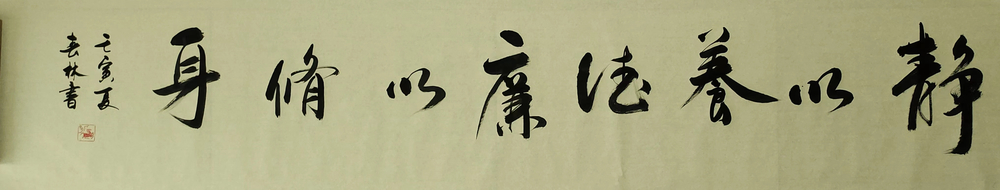 静以養德廉以脩身
壬寅夏
春林書